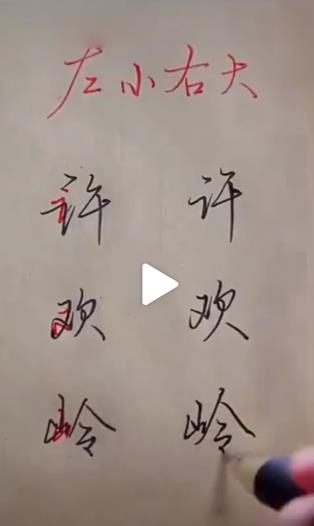 左小右大
许 许
欢 欢
岭 岭